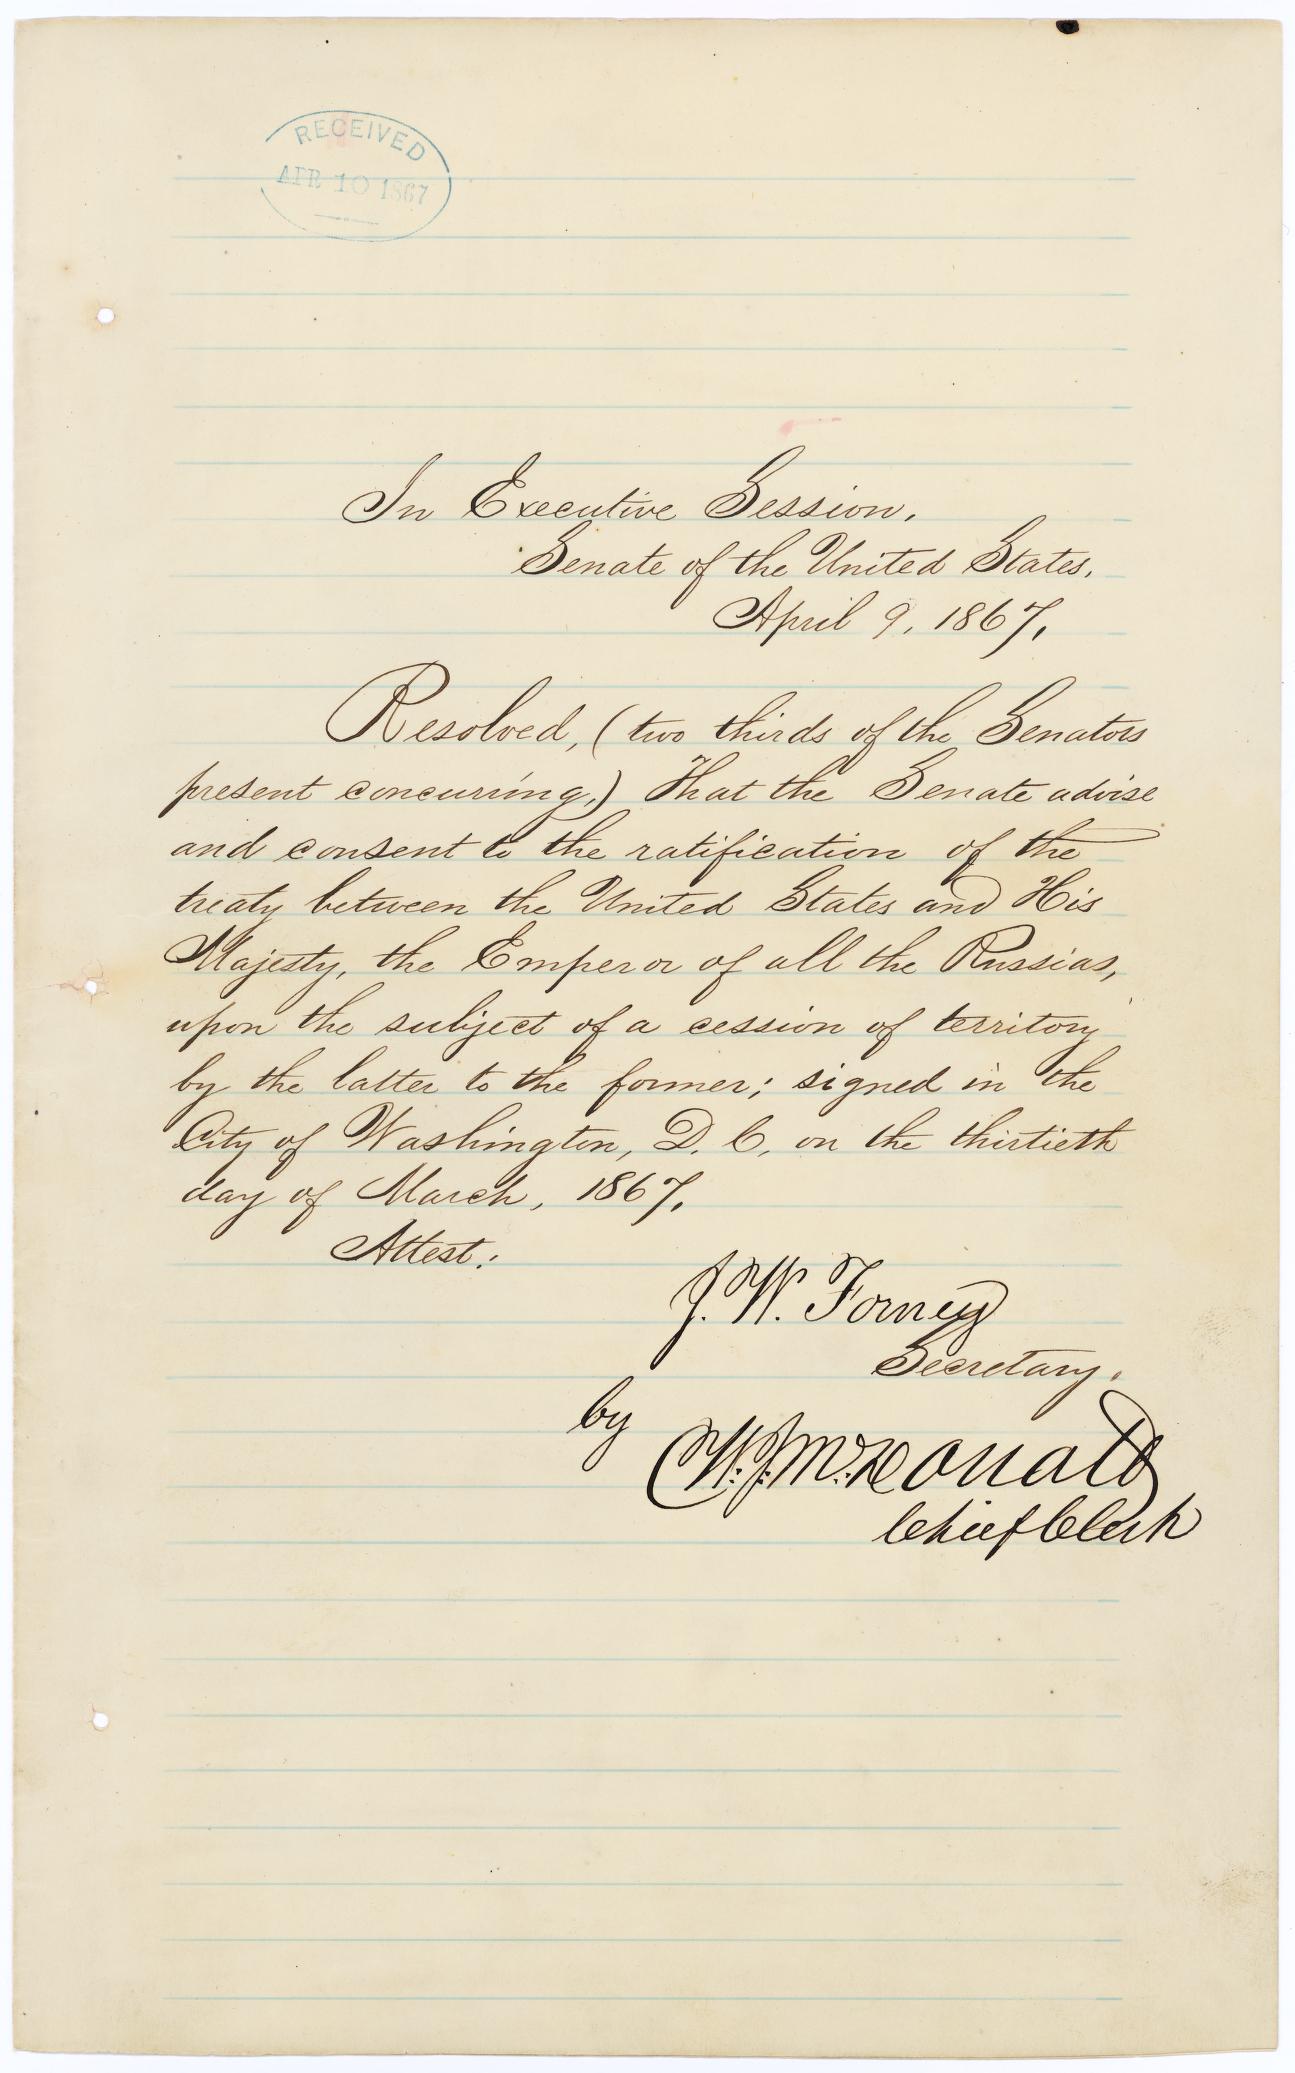 RECEIVED
APR 10 1867
In Executive Session,
Senate of the United States,
April 9, 1867,
Resolved, (two thirds of the Senators
present concurring,) That the Senate advise
and consent to the ratification of the
treaty between the United States and His
Majesty, the Emperor of all the Russias,
upon the subject of a cession of territory
by the latter to the former; signed in the
City of Washington, D. C, on the thirtieth
day of March, 1867,
Attest:
J. W. Forney
Secretary.
by
W. J. McDonald
Chief Clerk